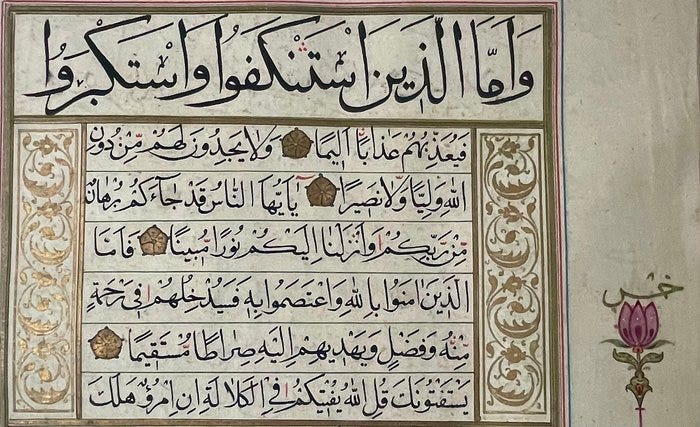 وَاَمَّا الَّذ۪ينَ اسْتَنْكَفُوا وَاسْتَكْبَرُوا
فَيُعَذِّبُهُمْ عَذَابًا اَل۪يمًا وَلَا يَجِدُونَ لَهُمْ مِنْ دُونِ
اللّٰهِ وَلِيًّا وَلَا نَص۪يرًا يَٓا اَيُّهَا النَّاسُ قَدْ جَٓاءَكُمْ بُرْهَانٌ
مِنْ رَبِّكُمْ وَاَنْزَلْنَٓا اِلَيْكُمْ نُورًا مُب۪ينًا فَاَمَّا
الَّذ۪ينَ اٰمَنُوا بِاللّٰهِ وَاعْتَصَمُوا بِه۪ فَسَيُدْخِلُهُمْ ف۪ي رَحْمَةٍ
مِنْهُ وَفَضْلٍ وَيَهْد۪يهِمْ اِلَيْهِ صِرَاطًا مُسْتَق۪يمًا
يَسْتَفْتُونَكَ قُلِ اللّٰهُ يُفْت۪يكُمْ فِي الْكَلَالَةِ اِنِ امْرُؤٌ هَلَكَ